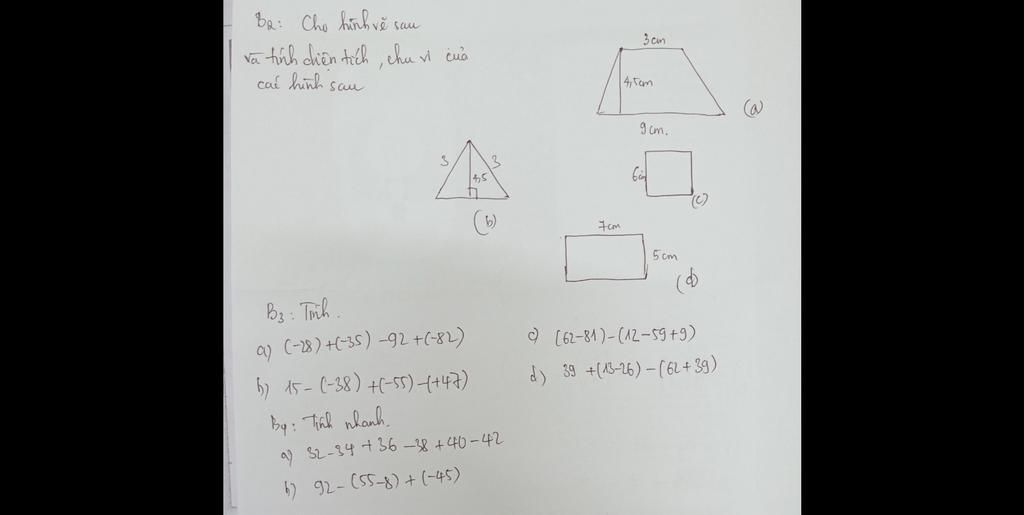 B2: Cho hình vẽ sau
và tính diện tích, chu vi của
các hình sau
3cm
4,5cm
9cm.
(a)
3
3
4,5
(b)
6cm
(c)
7cm
5cm
(d)
B3: Tính.
a) (-28)+(-35) -92 +(-82)
b) 15 - (-38) +(-55) -(+47)
c) (62-81) - (12-59+9)
d) 39 +(13-26) - (62+39)
B4: Tính nhanh.
a) 32-34+36-38+40-42
b) 92 - (55-8) + (-45)